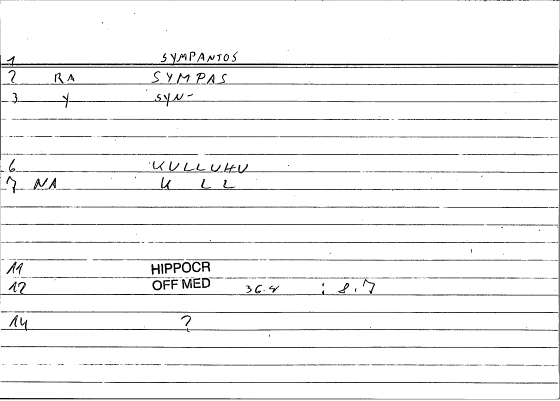 1 SYMPANTOS
2 RA SYMPAS
3 Y SYN-
6 KULLUHU
7 NA K L L
11 HIPPOCR
12 OFF MED 36.8 : 8.7
14 ?